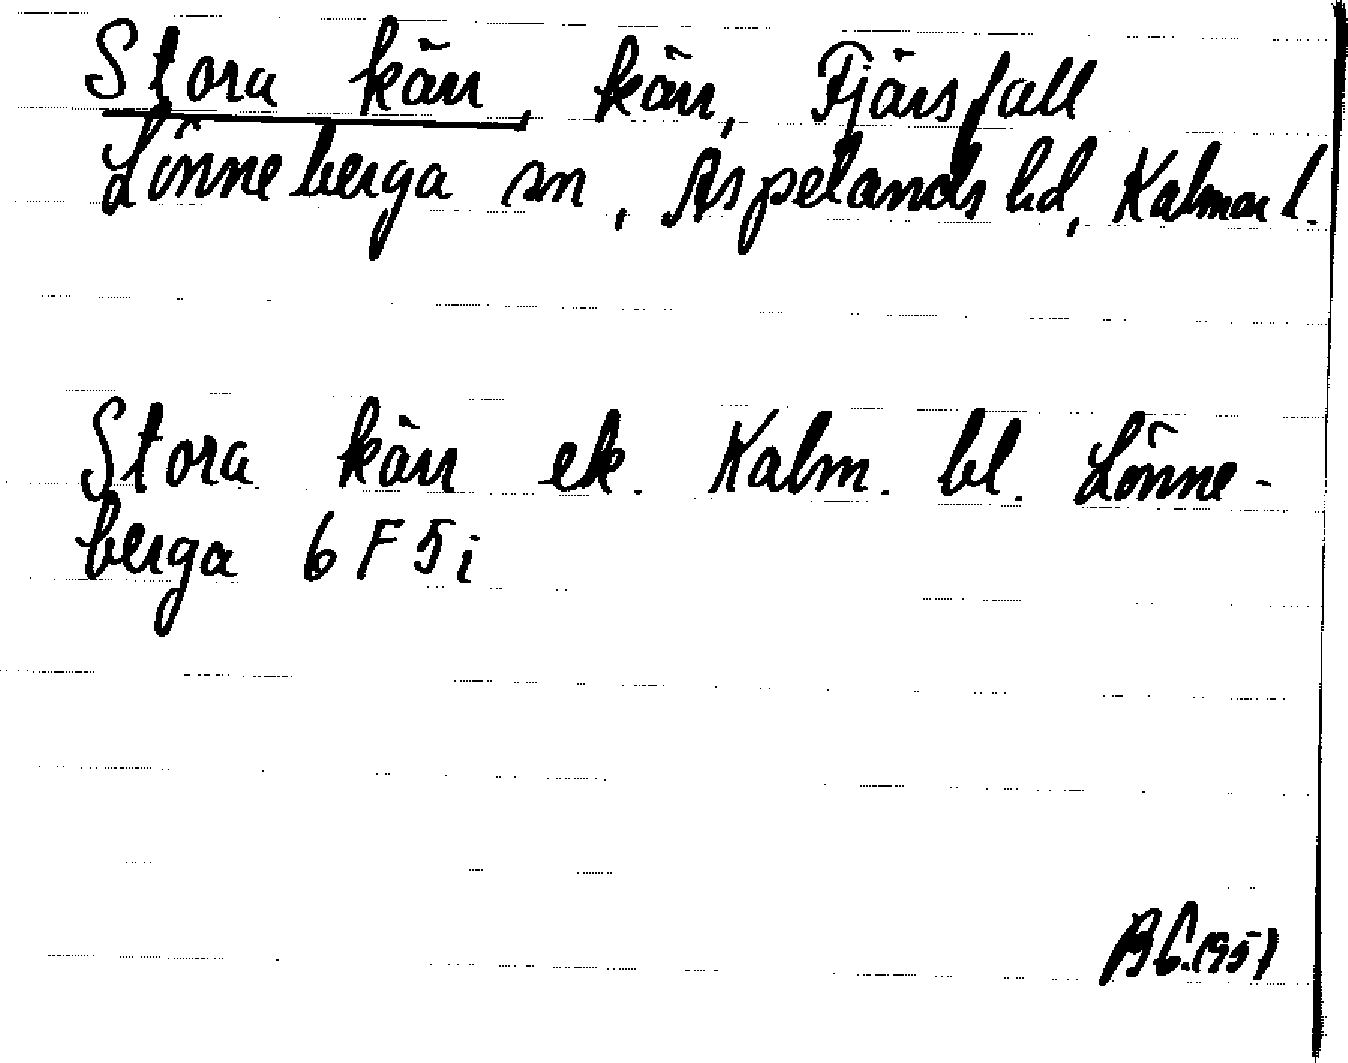 Stora kärr, kärr, Fjärsfall
Lönneberga sn, Aspelands hd, Kalmar l.
Stora kärr ek. Kalm. bl. Lönne-
berga 6 F 5 i